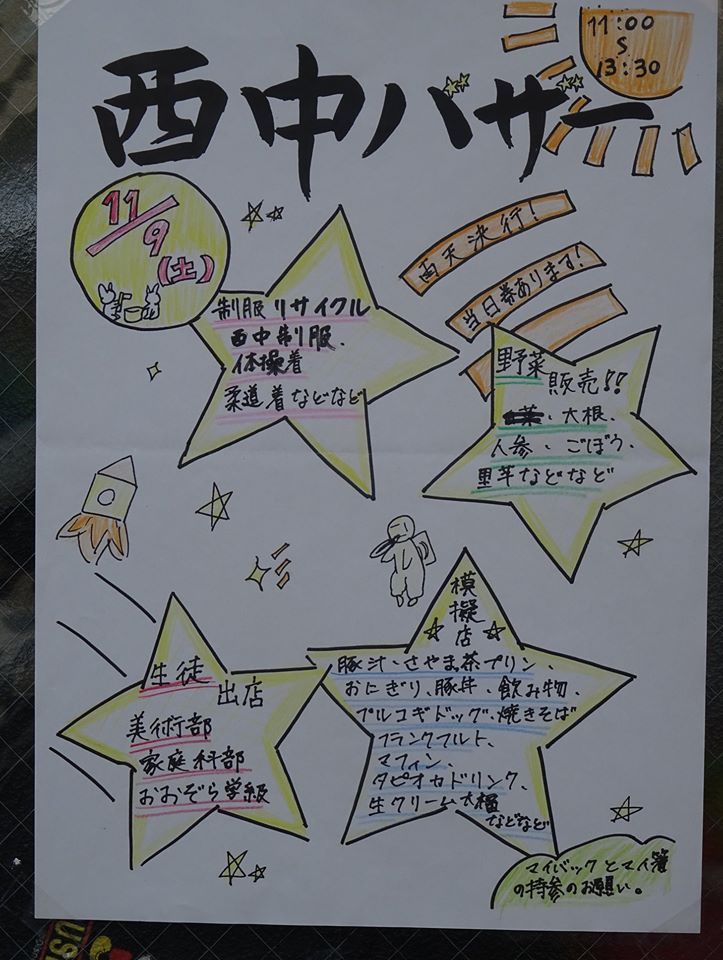 11:00
S
13:30
西中バザー
11/9
(土)
雨天決行!
当日券あります!
制服リサイクル
西中制服、
体操着
柔道着などなど
野菜
販売!!
大根、
人参、ごぼう、
里芋などなど
模擬店
豚汁、さやま茶プリン、
おにぎり、豚丼、飲み物、
プルコギドッグ、焼きそば
フランクフルト、
マフィン、
タピオカドリンク、
生クリーム大福
などなど
生徒
出店
美術部
家庭科部
おおぞら学級
マイバックとマイ箸
の持参のお願い。